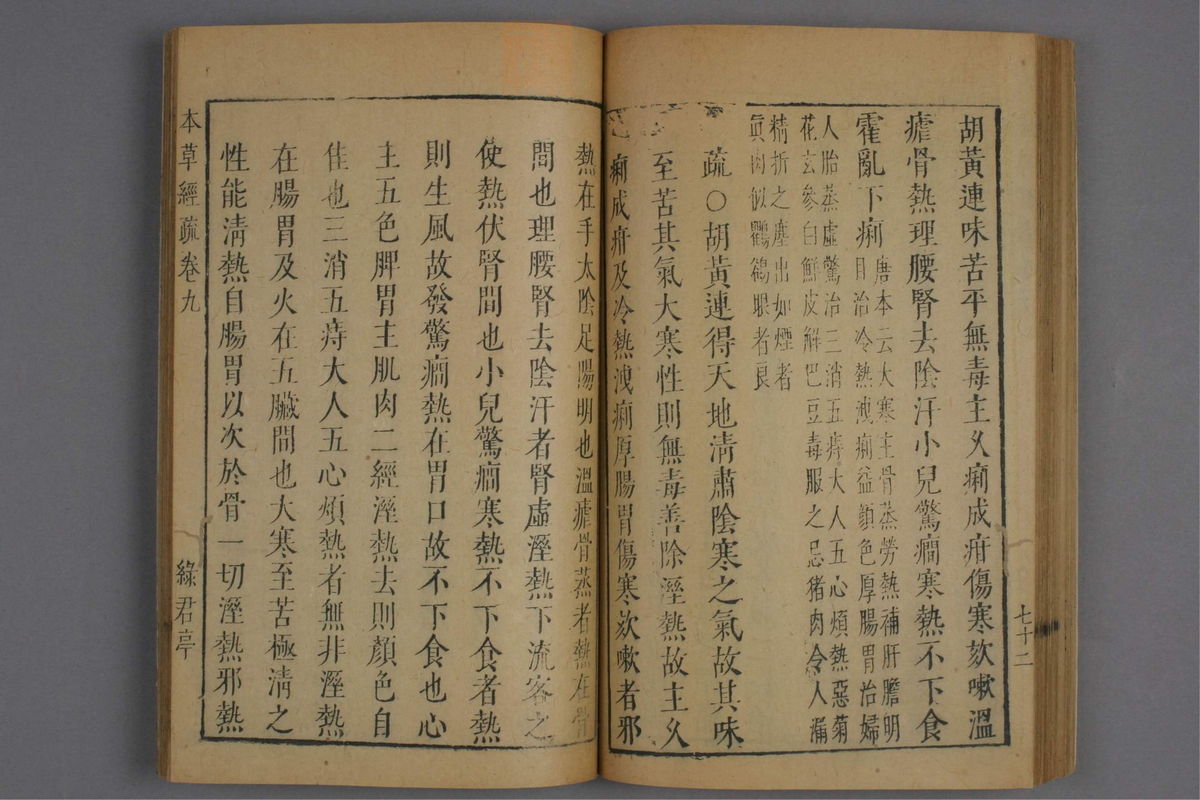 七十二
胡黃連味苦平無毒主久痢成疳傷寒欬嗽溫
瘧骨熱理腰腎去陰汗小兒驚癇寒熱不下食
霍亂下痢
唐本云大寒主骨蒸勞熱補肝膽明
目治冷熱洩痢益顏色厚腸胃治婦
人胎蒸虛驚治三消五痔大人五心煩熱惡菊
花玄參白鮮皮解巴豆毒服之忌猪肉令人漏
精折之塵出如煙者
眞肉似鸜鵒眼者良
疏〇胡黃連得天地淸肅陰寒之氣故其味
至苦其氣大寒性則無毒善除溼熱故主久
痢成疳及冷熱洩痢厚腸胃傷寒欬嗽者邪
熱在手太陰足陽明也溫瘧骨蒸者熱在骨
間也理腰腎去陰汗者腎虛溼熱下流客之
使熱伏腎間也小兒驚癇寒熱不下食者熱
則生風故發驚癇熱在胃口故不下食也心
主五色脾胃主肌肉二經溼熱去則顏色自
佳也三消五痔大人五心煩熱者無非溼熱
在腸胃及火在五臟間也大寒至苦極淸之
性能淸熱自腸胃以次於骨一切溼熱邪熱
本草經疏卷九
綠君亭